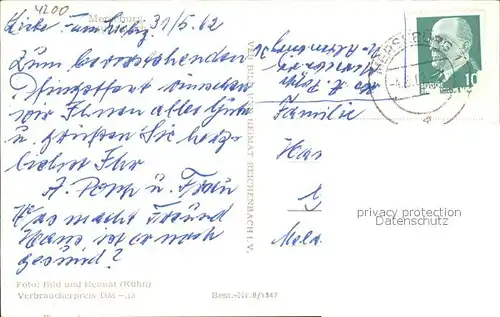 4200
Merseburg
Liebe Fam. 31/5.62
Zum bevorstehenden
Pfingstfest wünschen
wir Ihnen alles Gute
u. grüßen Sie herz-
lichst Ihr
A. Popp u. Frau
Was macht Freund
Hans ist er noch
gesund?
Foto: Bild und Heimat (Kühn)
Verbraucherpreis DM -,15
Best.-Nr. 8/1347
VERLAG BILD UND HEIMAT REICHENBACH I. V.
MERSEBURG 1
10
Familie
Han
privacy protection
data privacy